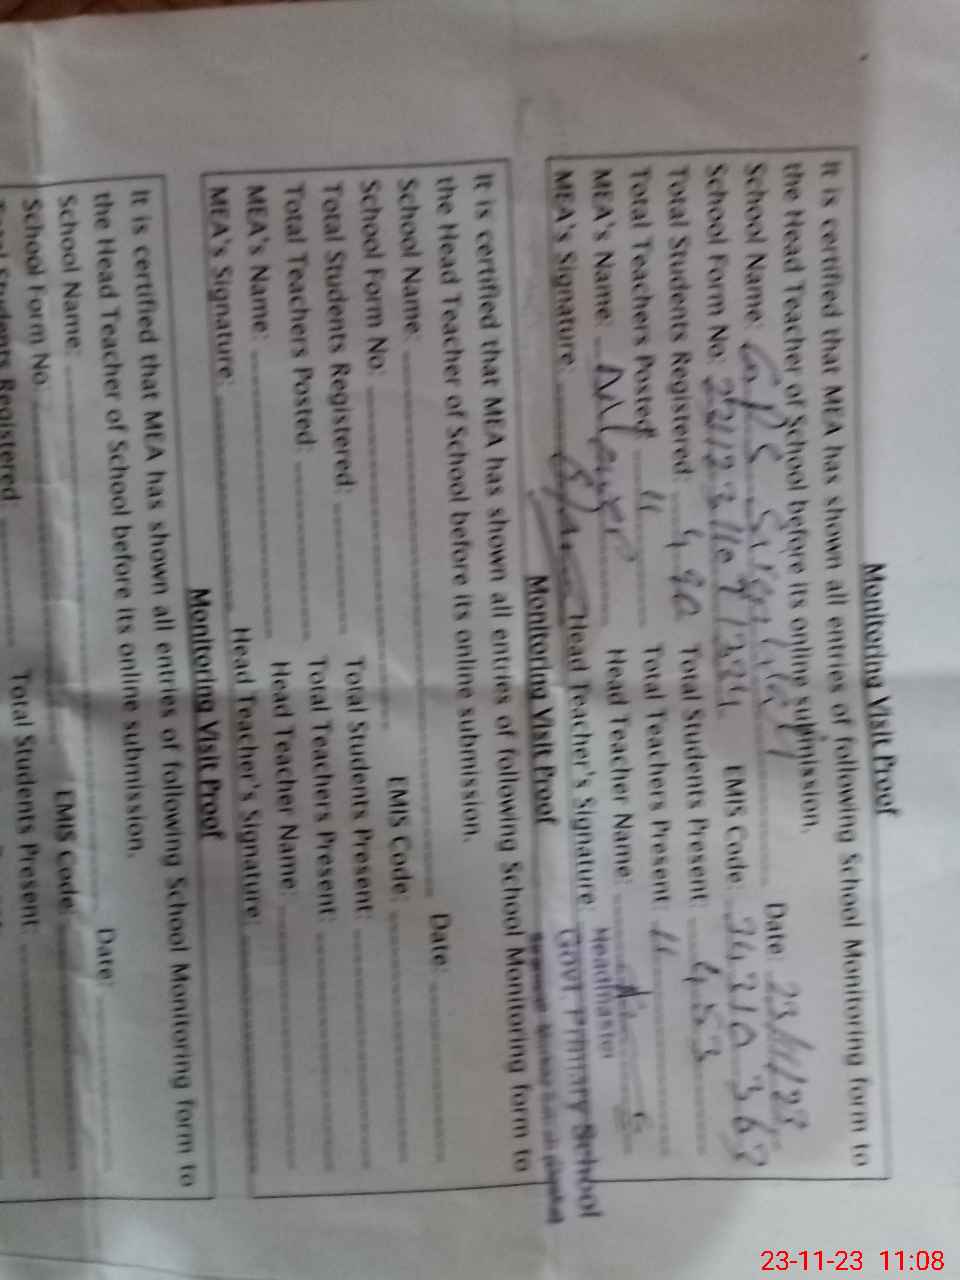 Monitoring Visit Proof
It is certified that MEA has shown all entries of following School Monitoring form to
the Head Teacher of School before its online submission.
School Name: GPS Date: 23/11/23
School Form No: EMIS Code:
Total Students Registered: 490 Total Students Present: 453
Total Teachers Posted: 11 Total Teachers Present: 11
MEA's Name: Head Teacher Name:
MEA's Signature: Head Teacher's Signature:
Headmaster
Govt. Primary School
Monitoring Visit Proof
It is certified that MEA has shown all entries of following School Monitoring form to
the Head Teacher of School before its online submission.
School Name: Date:
School Form No: EMIS Code:
Total Students Registered: Total Students Present:
Total Teachers Posted: Total Teachers Present:
MEA's Name: Head Teacher Name:
MEA's Signature: Head Teacher's Signature:
Monitoring Visit Proof
It is certified that MEA has shown all entries of following School Monitoring form to
the Head Teacher of School before its online submission.
School Name: Date:
School Form No: EMIS Code:
Total Students Registered: Total Students Present:
23-11-23 11:08